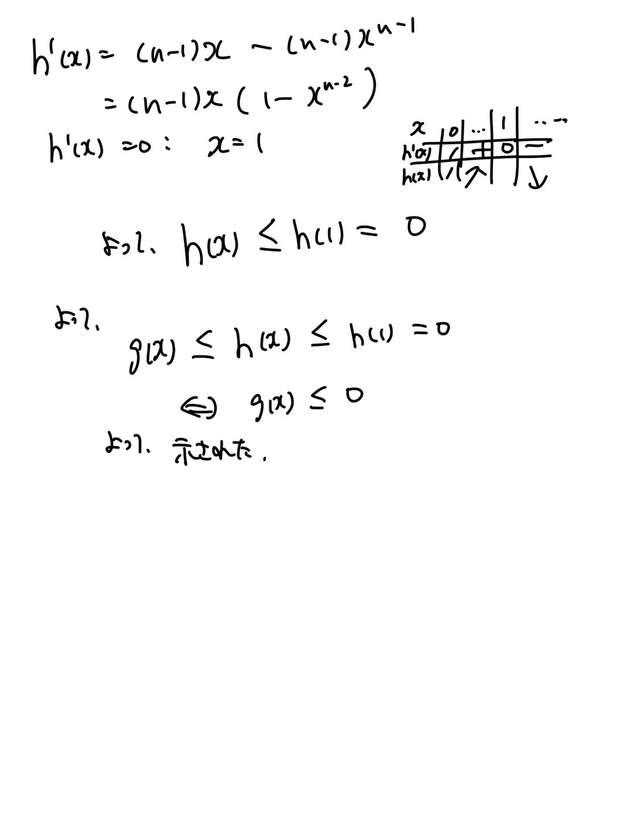 h'(x) = (n-1)x - (n-1)x^{n-1}
= (n-1)x ( 1 - x^{n-2} )
h'(x) = 0 : x = 1
x | 0 | ... | 1 | ...
h'(x) | / | + | 0 | -
h(x) | / | ↗ | | ↘
よって、 h(x) ≤ h(1) = 0
よって、
g(x) ≤ h(x) ≤ h(1) = 0
⇔ g(x) ≤ 0
よって、 示された.